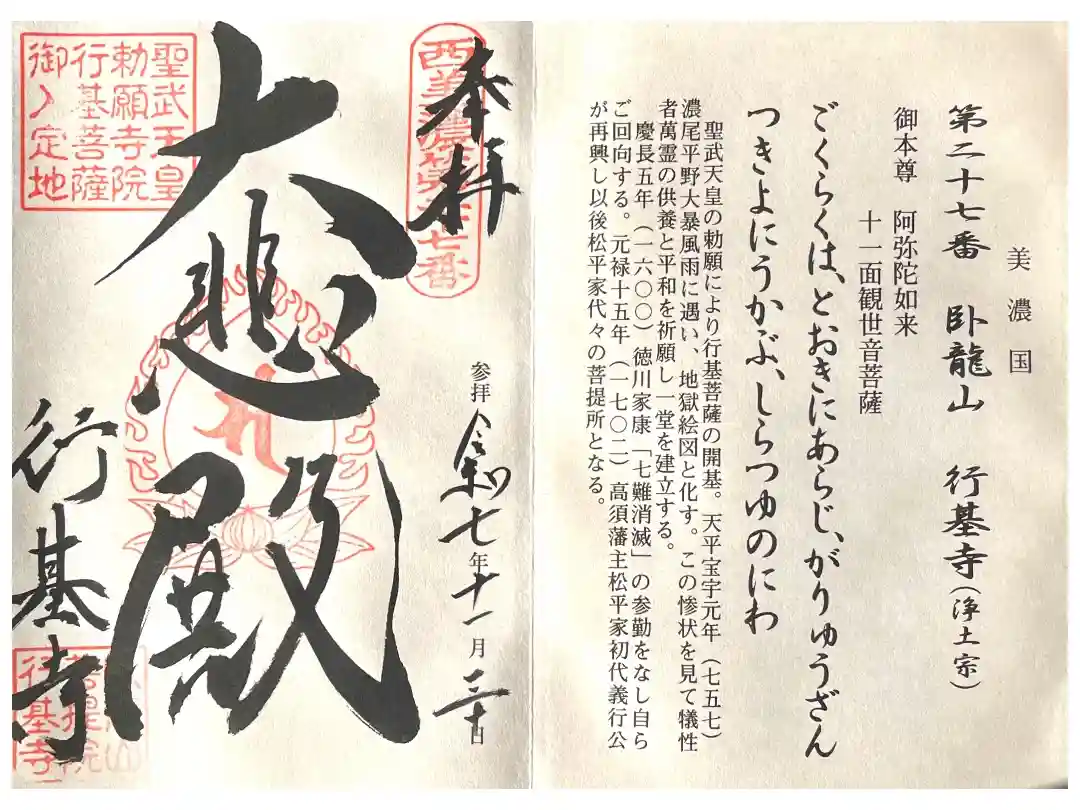 美濃国
第二十七番 臥龍山 行基寺(浄土宗)
御本尊 阿弥陀如来
十一面観世音菩薩
ごくらくは、とおきにあらじ、がりゅうざん
つきよにうかぶ、しらつゆのにわ
聖武天皇の勅願により行基菩薩の開基。天平宝宇元年(七五七)
濃尾平野大暴風雨に遇い、地獄絵図と化す。この惨状を見て犠性
者萬霊の供養と平和を祈願し一堂を建立する。
慶長五年(一六〇〇)徳川家康「七難消滅」の参勤をなし自ら
ご回向する。元禄十五年(一七〇二)高須藩主松平家初代義行公
が再興し以後松平家代々の菩提所となる。
奉拝
西美濃第二十七番
参拝 令和七年十一月三十日
大悲殿
聖武天皇
勅願寺院
行基菩薩
御入定地
行基寺
菩提院
行基寺